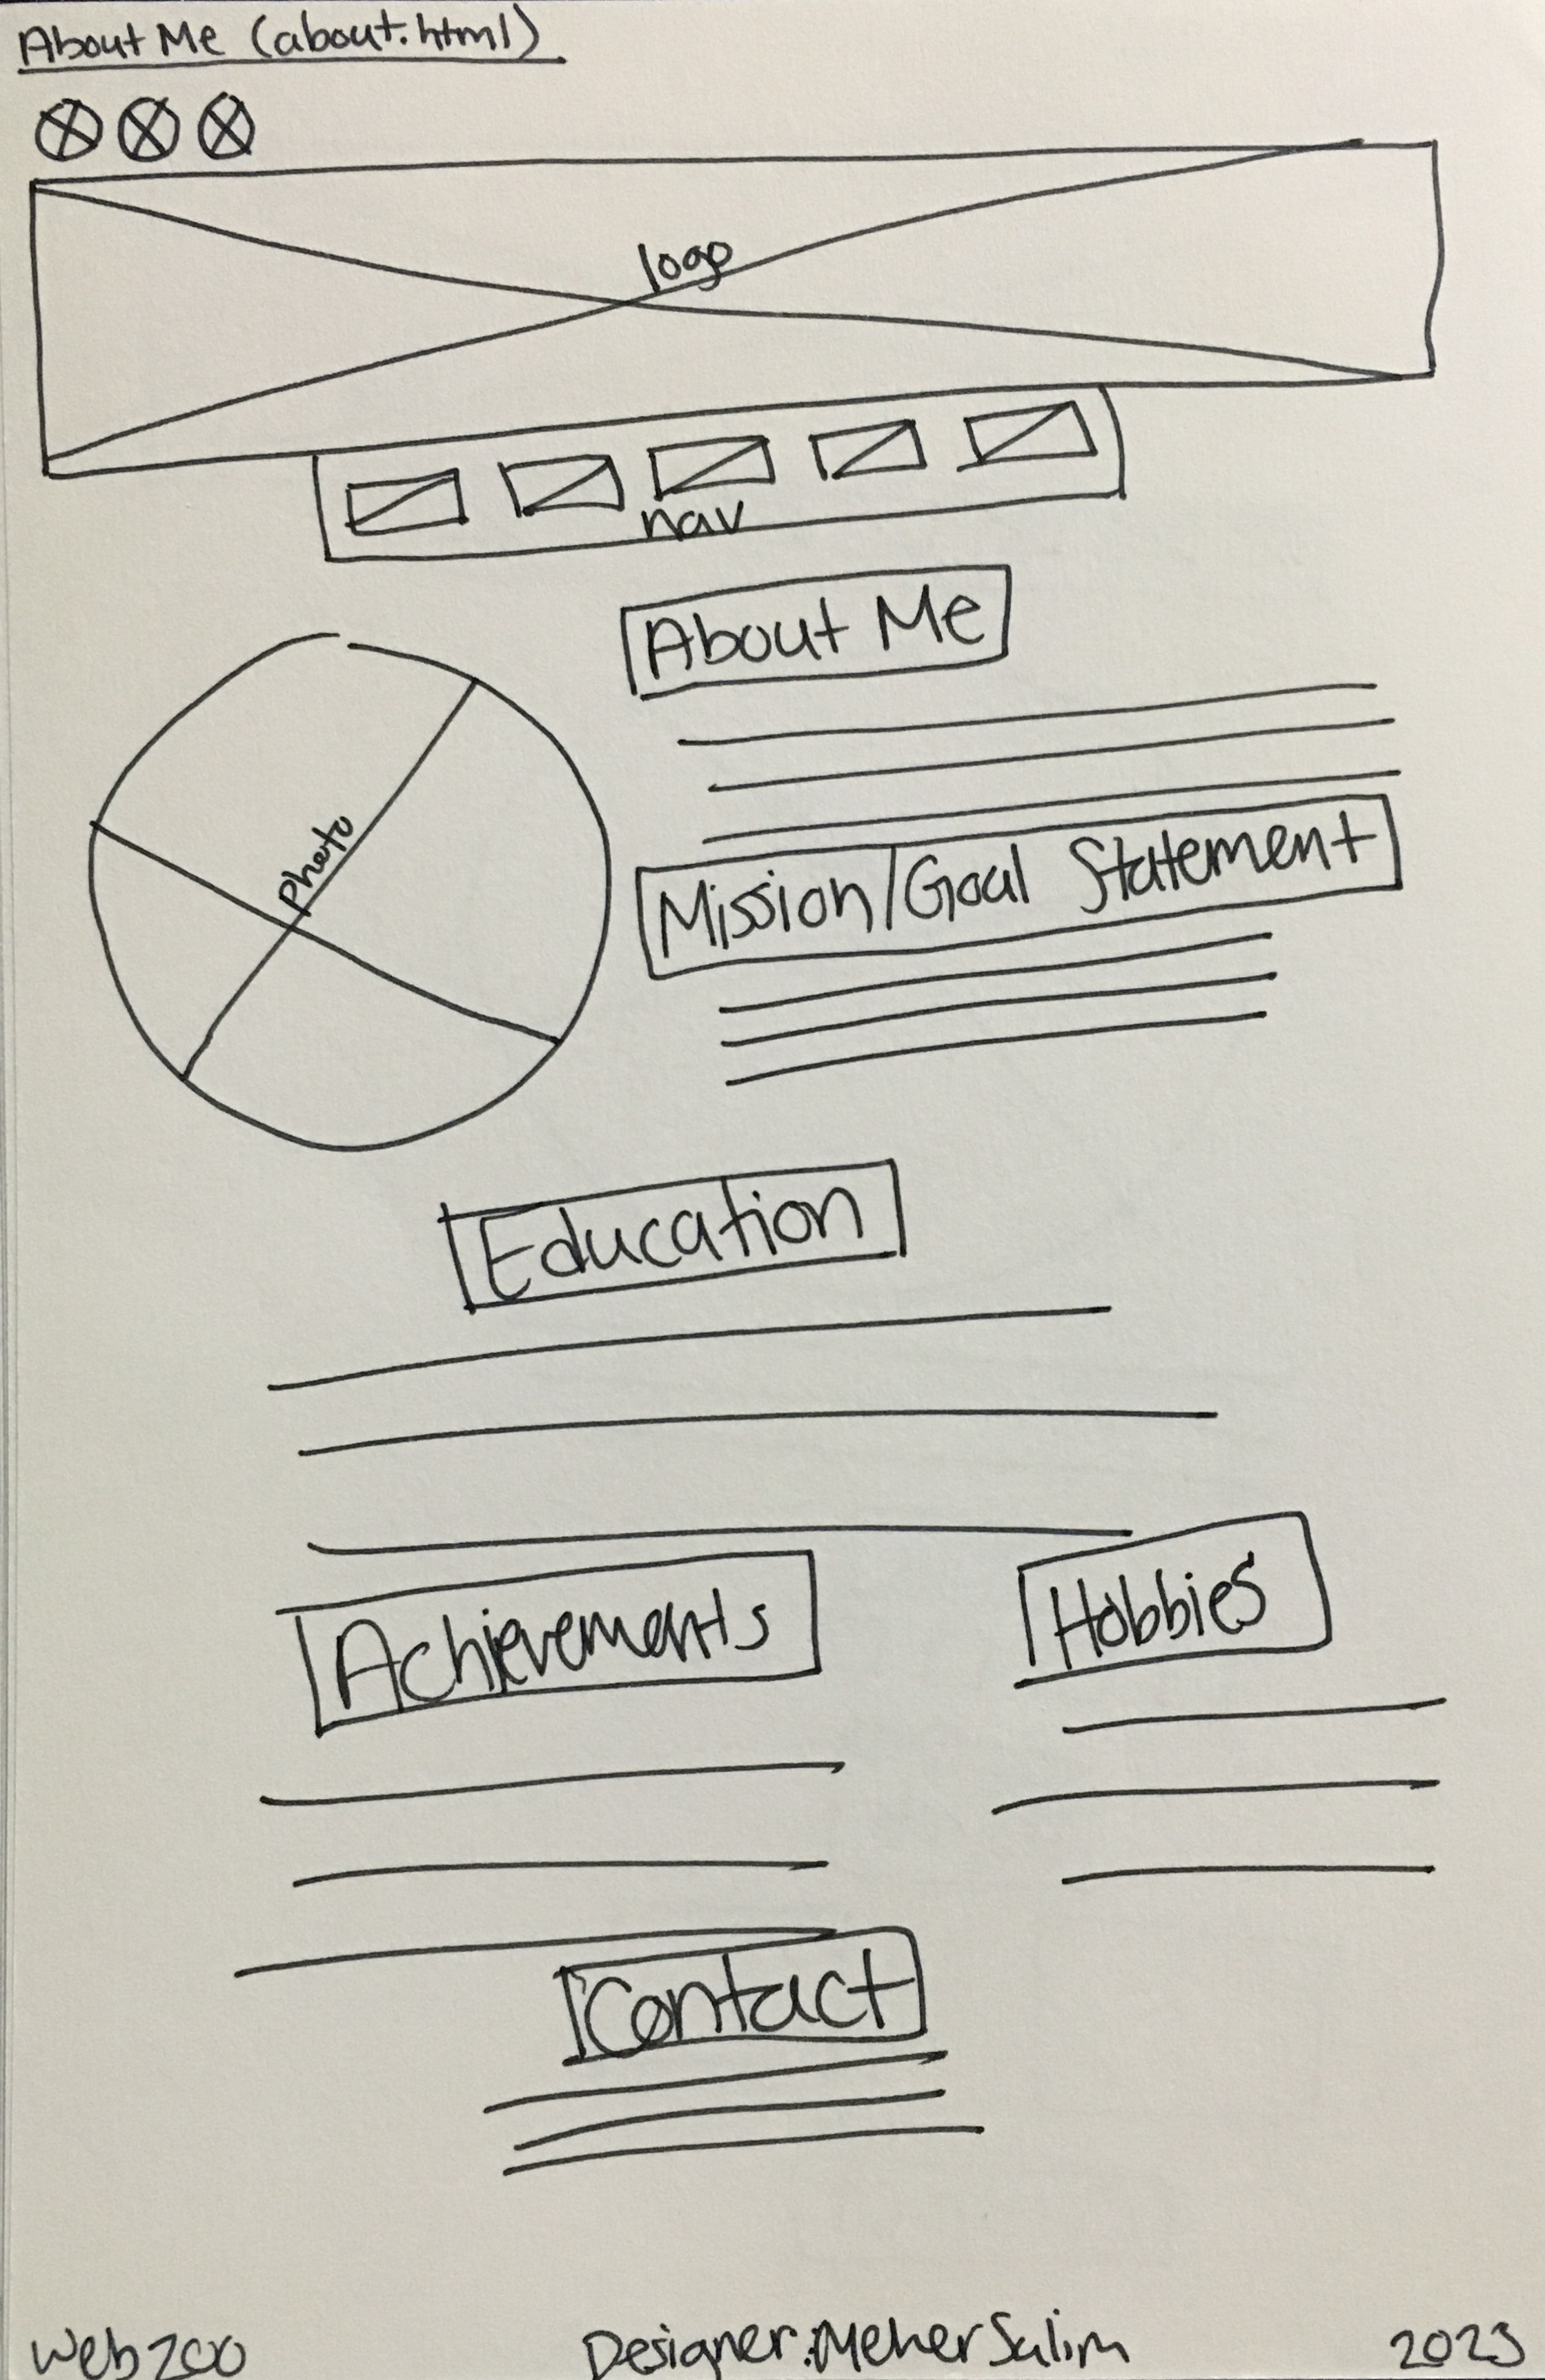 About Me (about.html)
logo
nav
About Me
Photo
Mission/Goal Statement
Education
Achievements
Hobbies
Contact
Web200 Designer: Meher Salim 2023